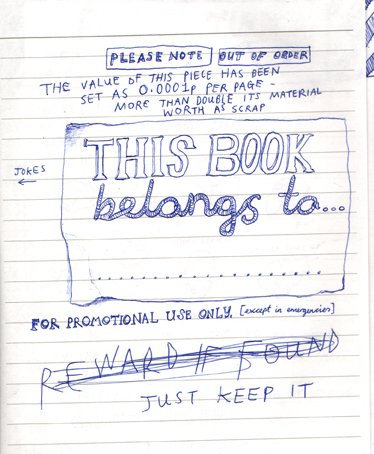 PLEASE NOTE OUT OF ORDER
THE VALUE OF THIS PIECE HAS BEEN
SET AS 0.0001p PER PAGE -
MORE THAN DOUBLE ITS MATERIAL
WORTH AS SCRAP
JOKES
THIS BOOK
belongs to...
FOR PROMOTIONAL USE ONLY. [except in emergencies]
REWARD IF FOUND
JUST KEEP IT